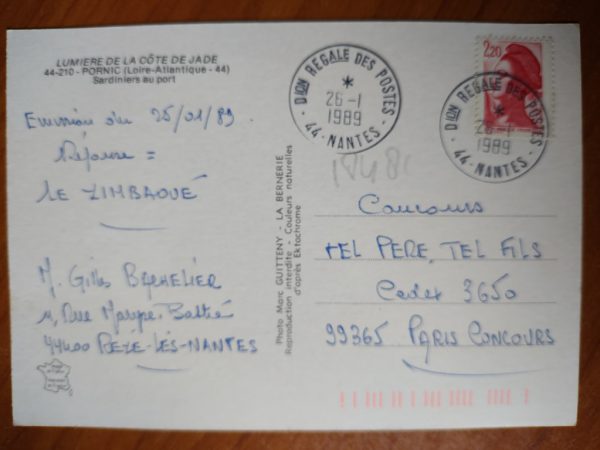 LUMIERE DE LA CÔTE DE JADE
44-210 - PORNIC (Loire-Atlantique - 44)
Sardiniers au port
Emission du 25/01/89.
Réponse =
LE ZIMBAOUÉ
M. Gilles BACHELIER
Rue
44400 REZÉ-LÈS-NANTES
Photo Marc GUITTENY - LA BERNERIE
Reproduction interdite - Couleurs naturelles
d'après Ektachrome
DION REGALE DES POSTES
*
26-1
1989
44-NANTES
2,20
DION REGALE DES POSTES
26-1
1989
44-NANTES
Concours
TEL PERE, TEL FILS
Cedex 3650
99365 PARIS CONCOURS